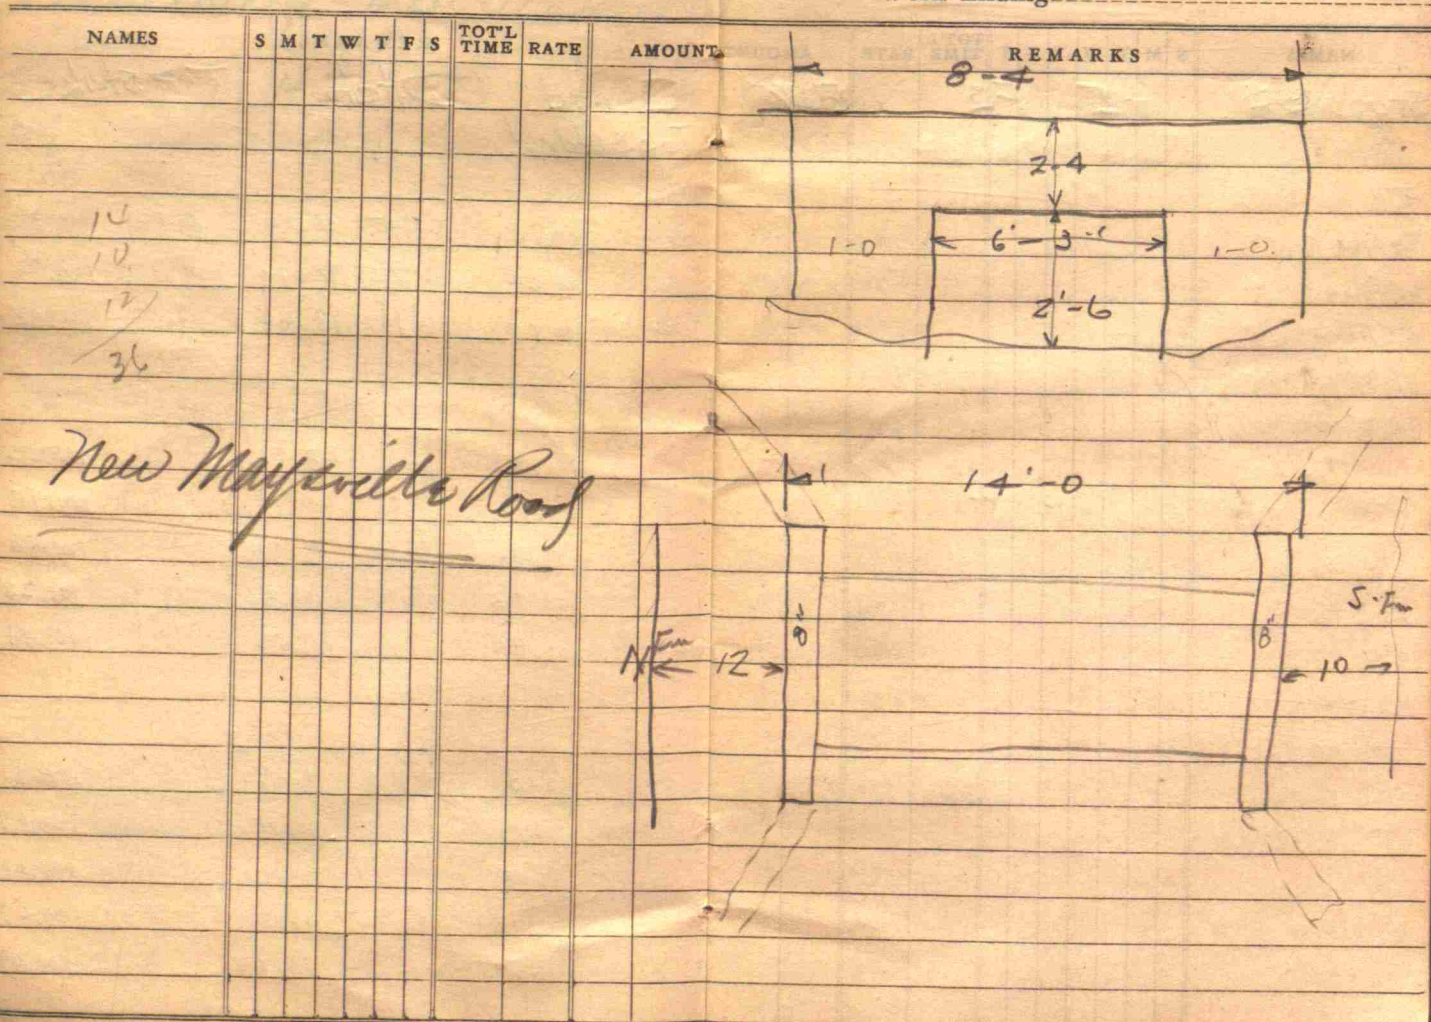 NAMES S M T W T F S TOT'L TIME RATE AMOUNT REMARKS
8-4
2-4
1-0 6'-3" 1-0.
2'-6
14
10
12
36
New Maysville Road
14'-0
8"
8"
N
12
10